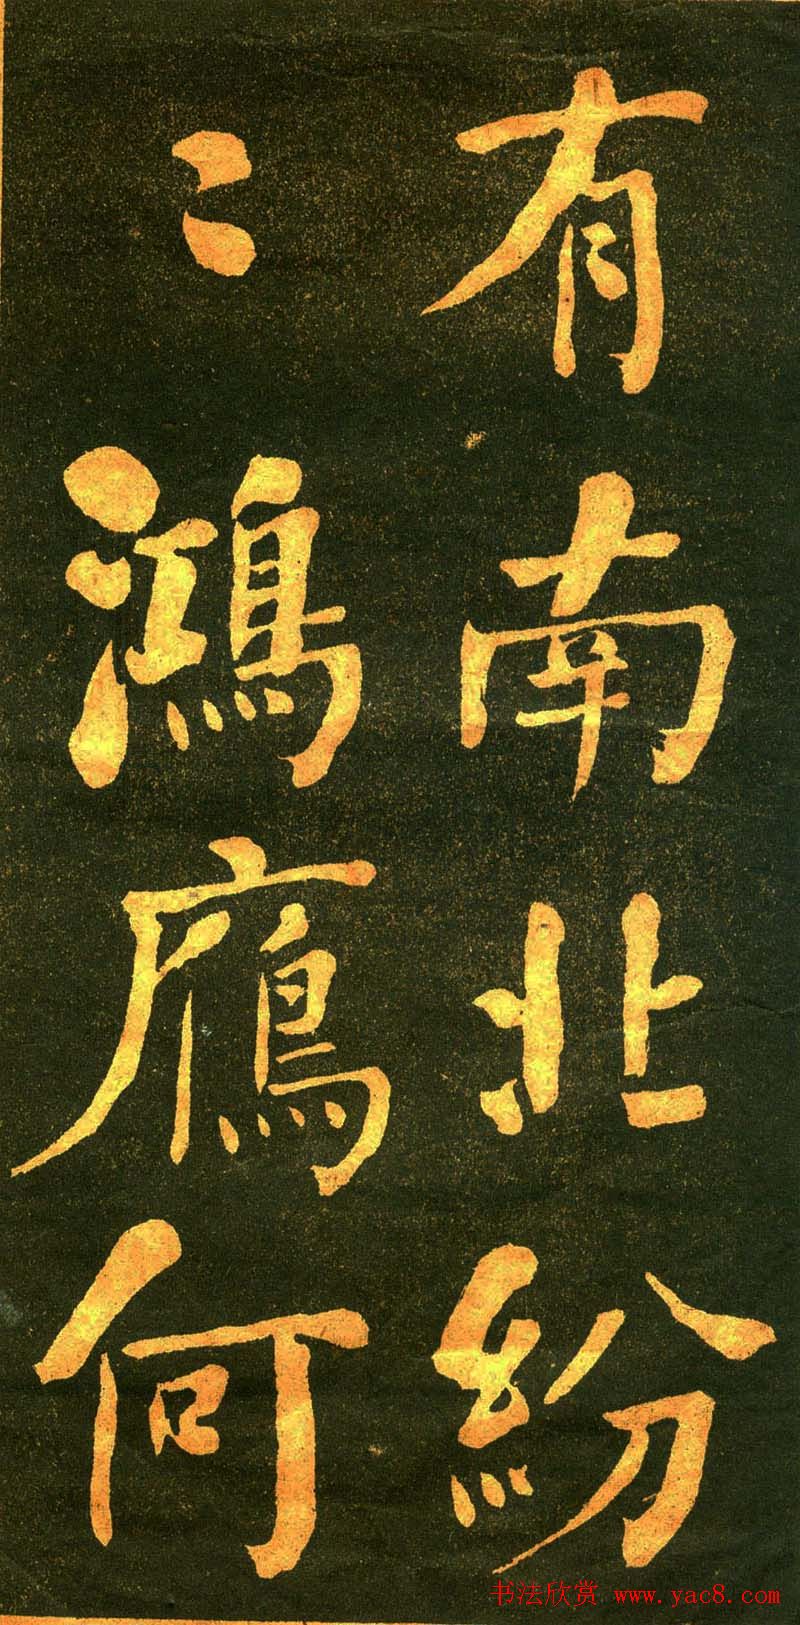 有南北紛
〻鴻鴈何
书法欣赏 www.yac8.com